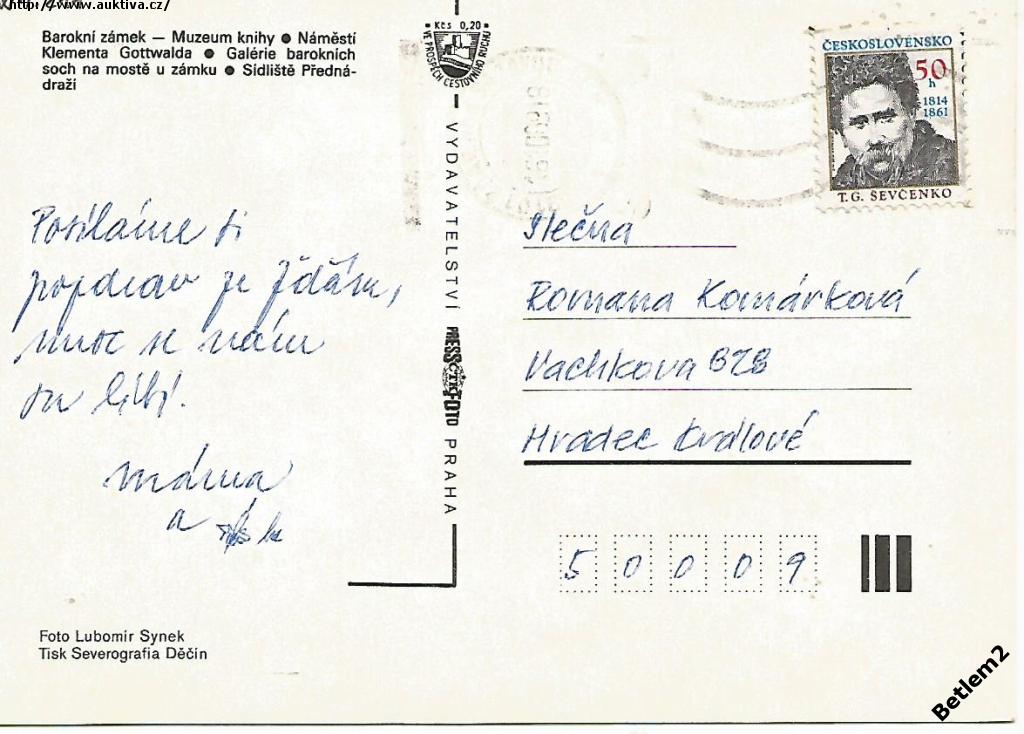 http://www.auktiva.cz/
Barokní zámek — Muzeum knihy ● Náměstí
Klementa Gottwalda ● Galérie barokních
soch na mostě u zámku ● Sídliště Předná-
draží
Kčs 0,20
VE PROSPĚCH CESTOVNÍHO RUCHU
ČESKOSLOVENSKO
50
h
1814
1861
T. G. ŠEVČENKO
Posíláme ti
pozdrav ze Žďáru,
moc se nám
tu líbí.
máma
a
VYDAVATELSTVÍ PRESSFOTO PRAHA
ČTK
Slečna
Romana Komárková
Vachkova 828
Hradec Králové
5 0 0 0 9
Foto Lubomír Synek
Tisk Severografia Děčín
Betlem2